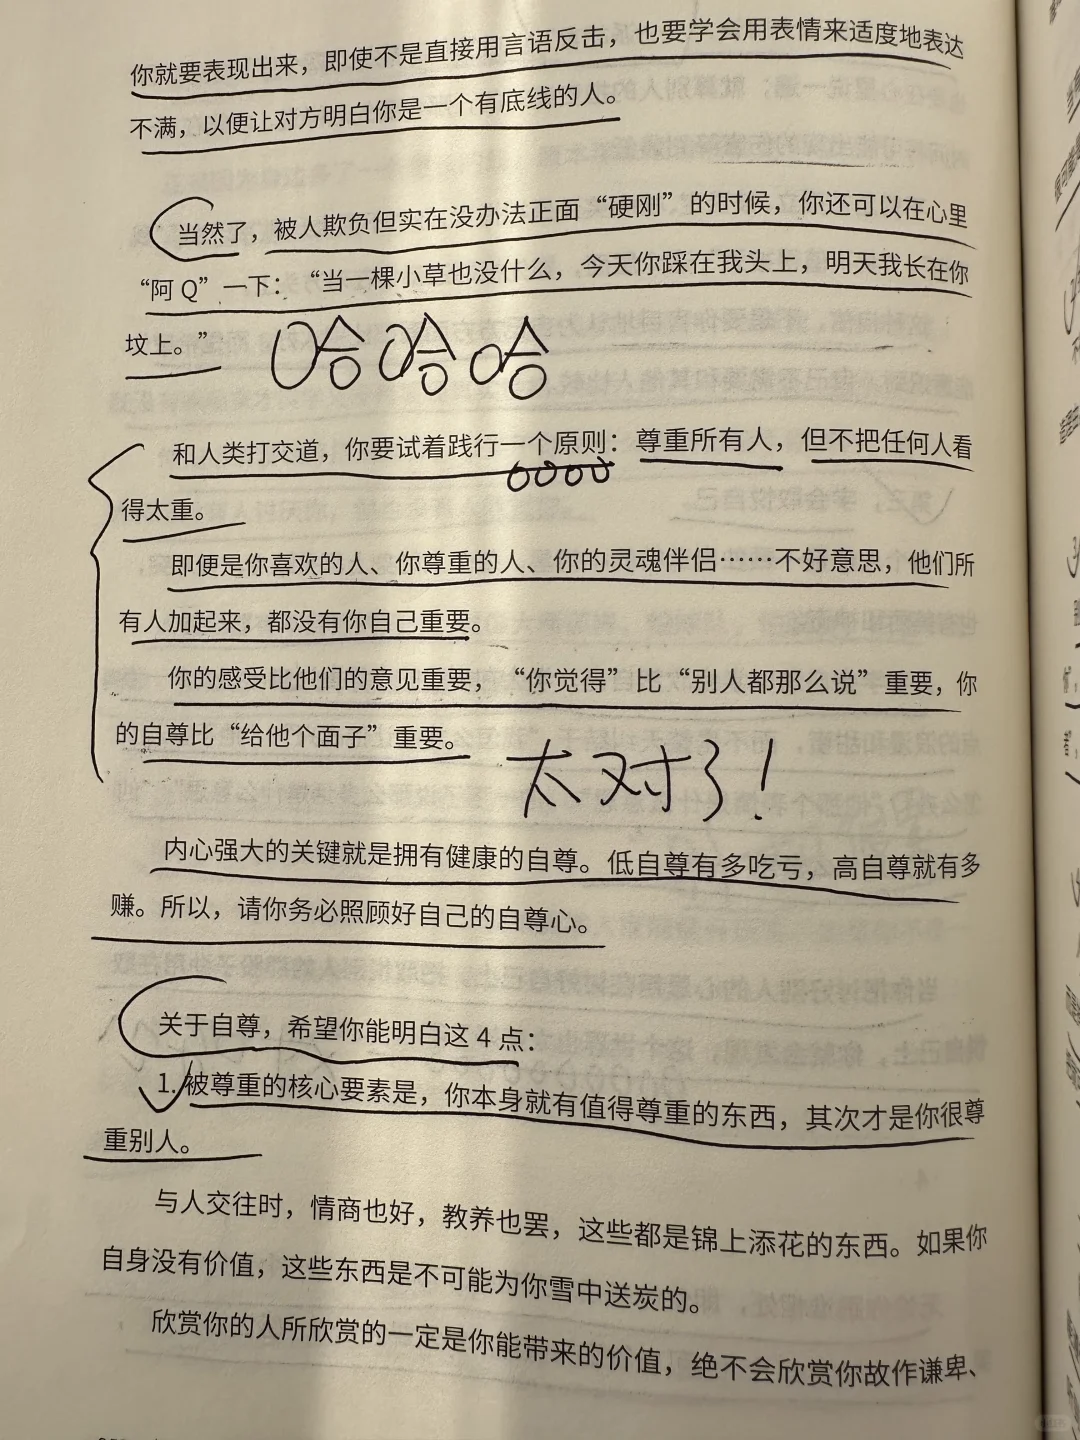 你就要表现出来，即使不是直接用言语反击，也要学会用表情来适度地表达
不满，以便让对方明白你是一个有底线的人。
当然了，被人欺负但实在没办法正面“硬刚”的时候，你还可以在心里
“阿 Q”一下：“当一棵小草也没什么，今天你踩在我头上，明天我长在你
坟上。”
哈哈哈
和人类打交道，你要试着践行一个原则：尊重所有人，但不把任何人看
得太重。
即便是你喜欢的人、你尊重的人、你的灵魂伴侣……不好意思，他们所
有人加起来，都没有你自己重要。
你的感受比他们的意见重要，“你觉得”比“别人都那么说”重要，你
的自尊比“给他个面子”重要。
太对了！
内心强大的关键就是拥有健康的自尊。低自尊有多吃亏，高自尊就有多
赚。所以，请你务必照顾好自己的自尊心。
关于自尊，希望你能明白这 4 点：
1. 被尊重的核心要素是，你本身就有值得尊重的东西，其次才是你很尊
重别人。
与人交往时，情商也好，教养也罢，这些都是锦上添花的东西。如果你
自身没有价值，这些东西是不可能为你雪中送炭的。
欣赏你的人所欣赏的一定是你能带来的价值，绝不会欣赏你故作谦卑、